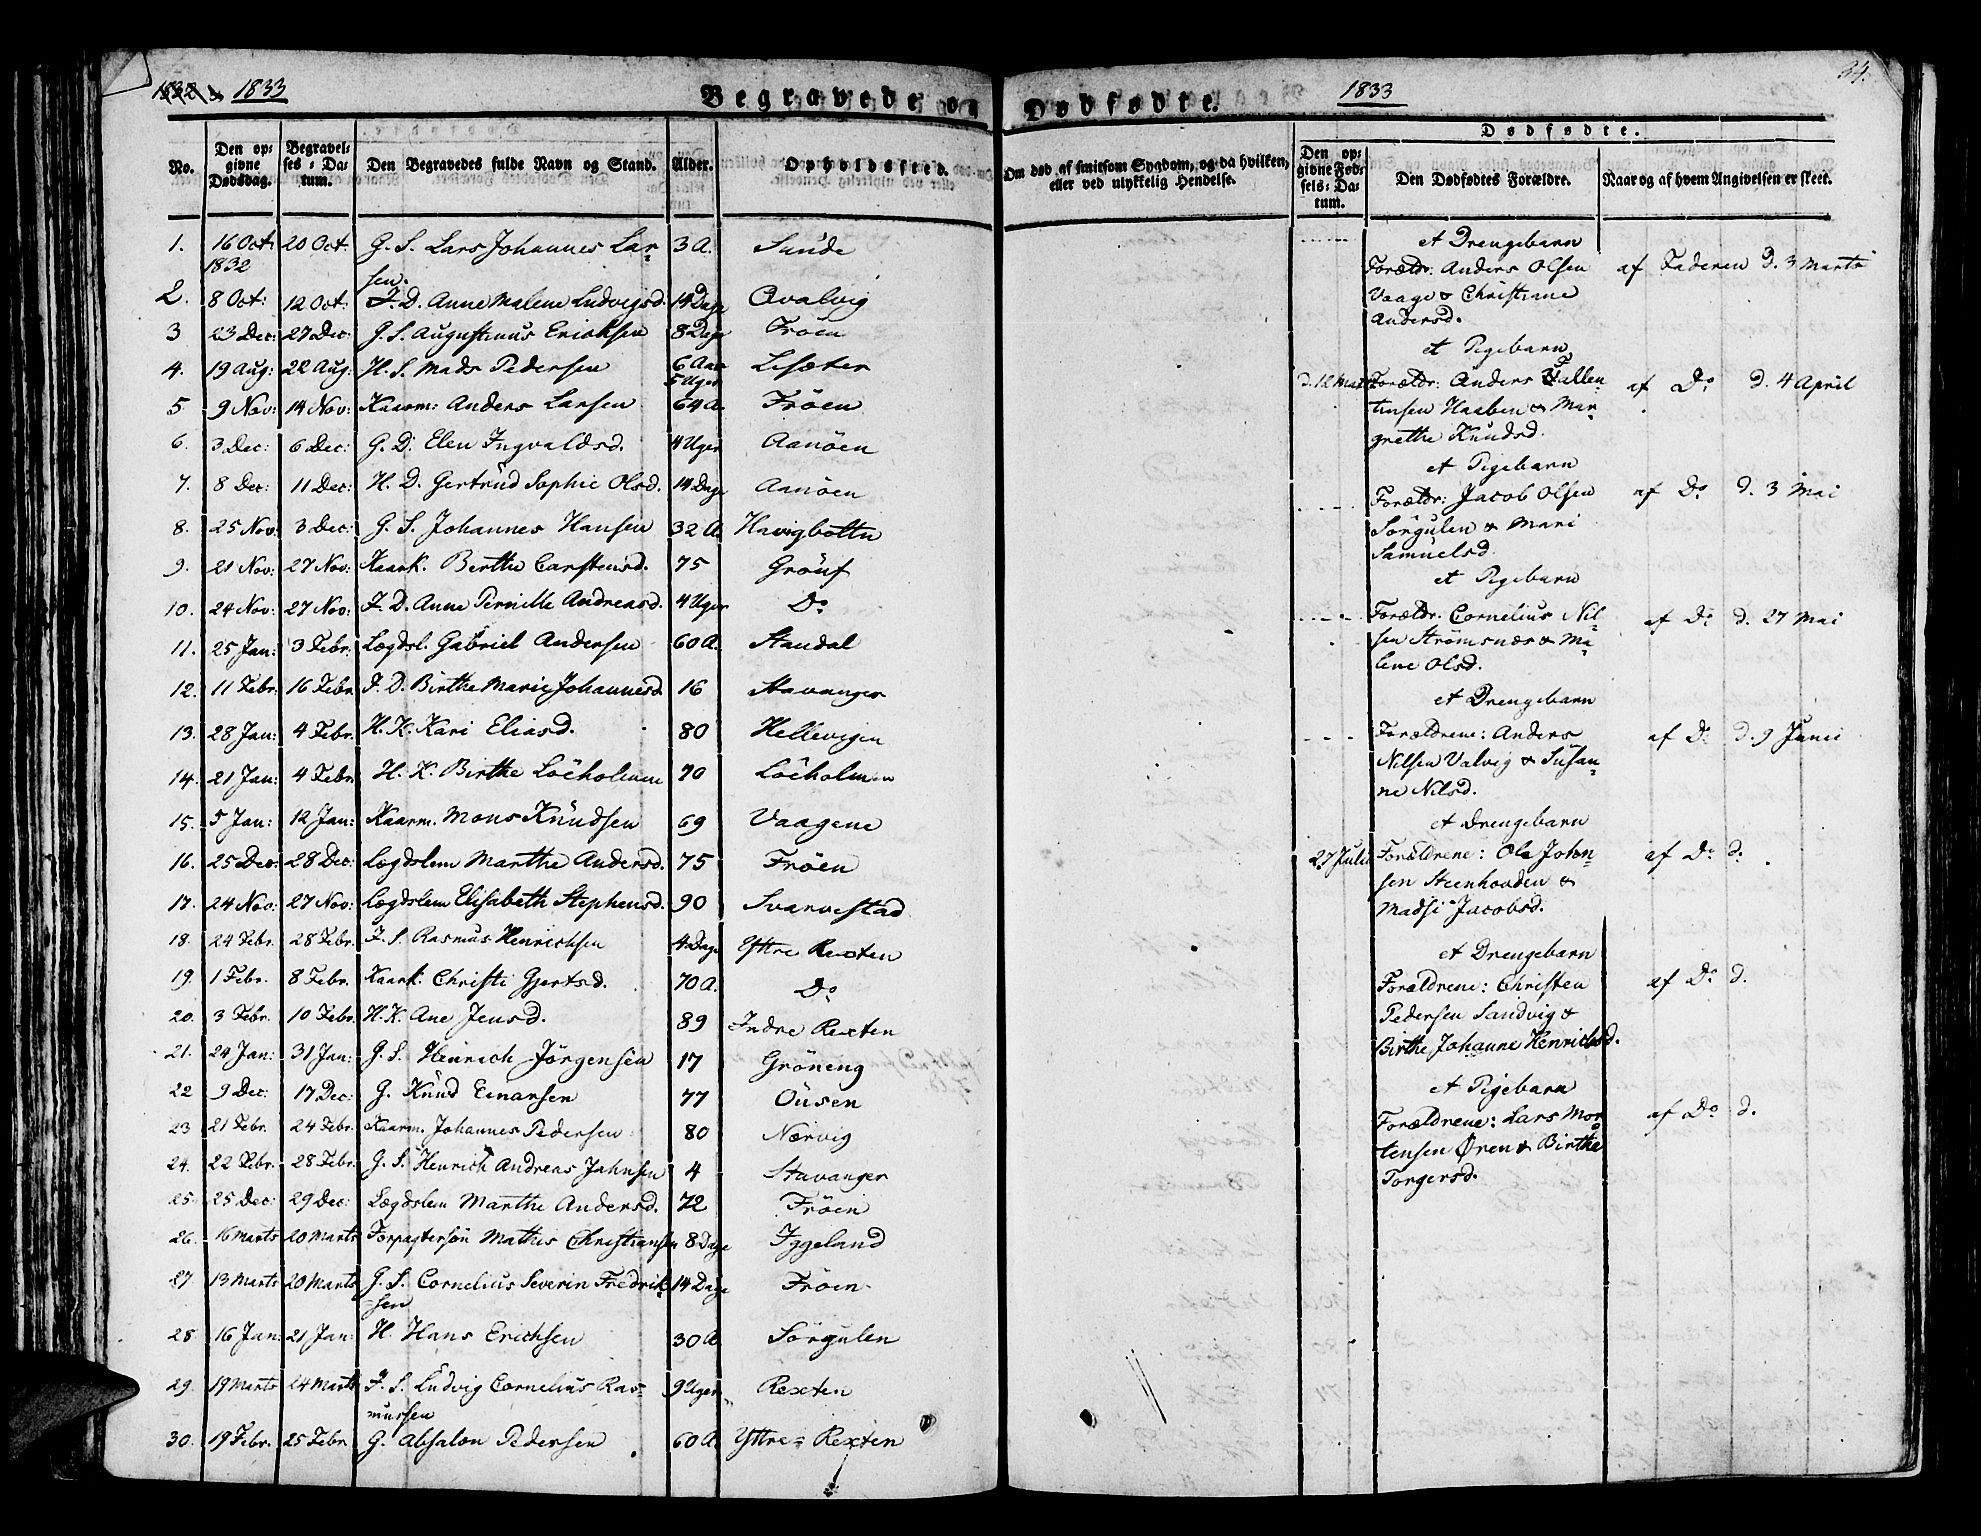 1833
Begravede og Dødfødte.
1833
34.
No.
Den opgivne Dødsdag.
Begravelses-Datum.
Den Begravedes fulde Navn og Stand.
Alder.
Opholdssted.
Om død af smitsom Sygdom, og da hvilken, eller ved ulykkelig Hendelse.
Dødfødte.
Den opgivne Fødsels-Datum.
Den Dødfødtes Forældre.
Naar og af hvem Angivelsen er skeet.
1. 16 Oct: 1832 20 Oct: G. S. Lars Johannes Larsen 3 A. Sunde
2. 8 Oct: 12 Oct: F. D. Anne Malene Ludvigsd. 14 Dage Qvalvig
3 23 Dec: 27 Dec: G. S. Augustinus Erichsen 8 Dage Fröen
4. 19 Aug: 22 Aug: H. S. Mads Pedersen 6 Aar 5 Uger Lisæter
5. 9 Nov: 14 Nov: Kaarm: Anders Larsen 64 A. Fröen
6. 3 Dec: 6 Dec: G. D. Elen Ingvaldsd. 4 Uger Aanöen
7. 8 Dec: 11 Dec: H. D. Gertrud Sophie Olsd. 14 Dage Aanöen
8. 25 Nov: 3 Dec: G. S. Johannes Hansen 32 A. Havigbottn
9. 21 Nov: 27 Nov: Kaark. Birthe Carstensd. 75 Gröuf
10. 24 Nov: 27 Nov: F. D. Anne Pernille Andreasd. 4 Uger Do
11. 25 Jan: 3 Febr. Lægdsl. Gabriel Andersen 60 A. Standal
12. 11 Febr. 16 Febr. F. D. Birthe Marie Johannesd. 16 Stavanger
13. 28 Jan: 4 Febr. H. K. Kari Eliasd. 80 Hellevigen
14. 21 Jan: 4 Febr. H. K. Birthe Löeholmen 70 Löeholmen
15. 5 Jan: 12 Jan: Kaarm. Mons Knudsen 69 Vaagene
16. 25 Dec: 28 Dec: Lægdslem Marthe Andersd. 75 Fröen
17. 24 Nov: 27 Nov: Lægdslem Elisabeth Stephensd. 90 Svarvestad
18. 24 Febr. 28 Febr. F. S. Rasmus Henrichsen 4 Dage Yttre Rexten
19. 1 Febr. 8 Febr. Kaark. Christi Gjertsd. 70 A. Do
20. 3 Febr. 10 Febr. H. K. Ane Jensd. 89 Indre Rexten
21. 24 Jan: 31 Jan: G. S. Heinrich Jörgensen 17 Gröneng
22 9 Dec: 17 Dec: G. Knud Einarsen 77 Öusen
23 21 Febr. 24 Febr. Kaarm. Johannes Pedersen 80 Nærvig
24. 22 Febr. 28 Febr. G. S. Henrich Andreas Jahnsen 4 Stavanger
25. 25 Dec: 29 Dec: Lægdslem Marthe Andersd. 72 Fröen
26. 16 Marts 20 Marts Forpagtersön Mathis Christiansen 8 Dage Iggeland
27 13 Marts 20 Marts G. S. Cornelius Severin Fredriksen 14 Dage Fröen
28 16 Jan: 21 Jan: H. Hans Erichsen 30 A. Sörgulen
29. 19 Marts 24 Marts F. S. Ludvig Cornelius Rasmussen 9 Uger Rexten
30. 19 Febr. 25 Febr G. Absalon Pedersen 60 A. Yttre Rexten
et Drengebarn
Forældr: Anders Olsen
Vaage & Christiane
Andersd.
af Faderen d. 3 Marts
et Pigebarn
d. 12 Marts Forældr: Anders Vallentinsen Haaben & Margrethe Knudsd.
af Do d. 4 April
et Pigebarn
Forældr: Jacob Olsen
Sörgulen & Mari
Samuelsd.
af Do d. 3 Mai
et Pigebarn
Forældr. Cornelius Nilsen Strömsnæs & Malene Olsd.
af Do d. 27 Mai
et Drengebarn
Forældrene: Anders
Nilsen Valvig & Susanne Nilsd.
af Do d. 9 Junii
et Drengebarn
27 Juli Forældrene: Ole Johnsen Steenhovden &
Madsi Jacobsd.
af Do d.
et Drengebarn
Forældrene: Christen
Pedersen Sandvig &
Birthe Johanne Henrichsd.
af Do d.
et Pigebarn
Forældrene: Lars Mortensen Øren & Birthe
Torgersd.
af Do d.